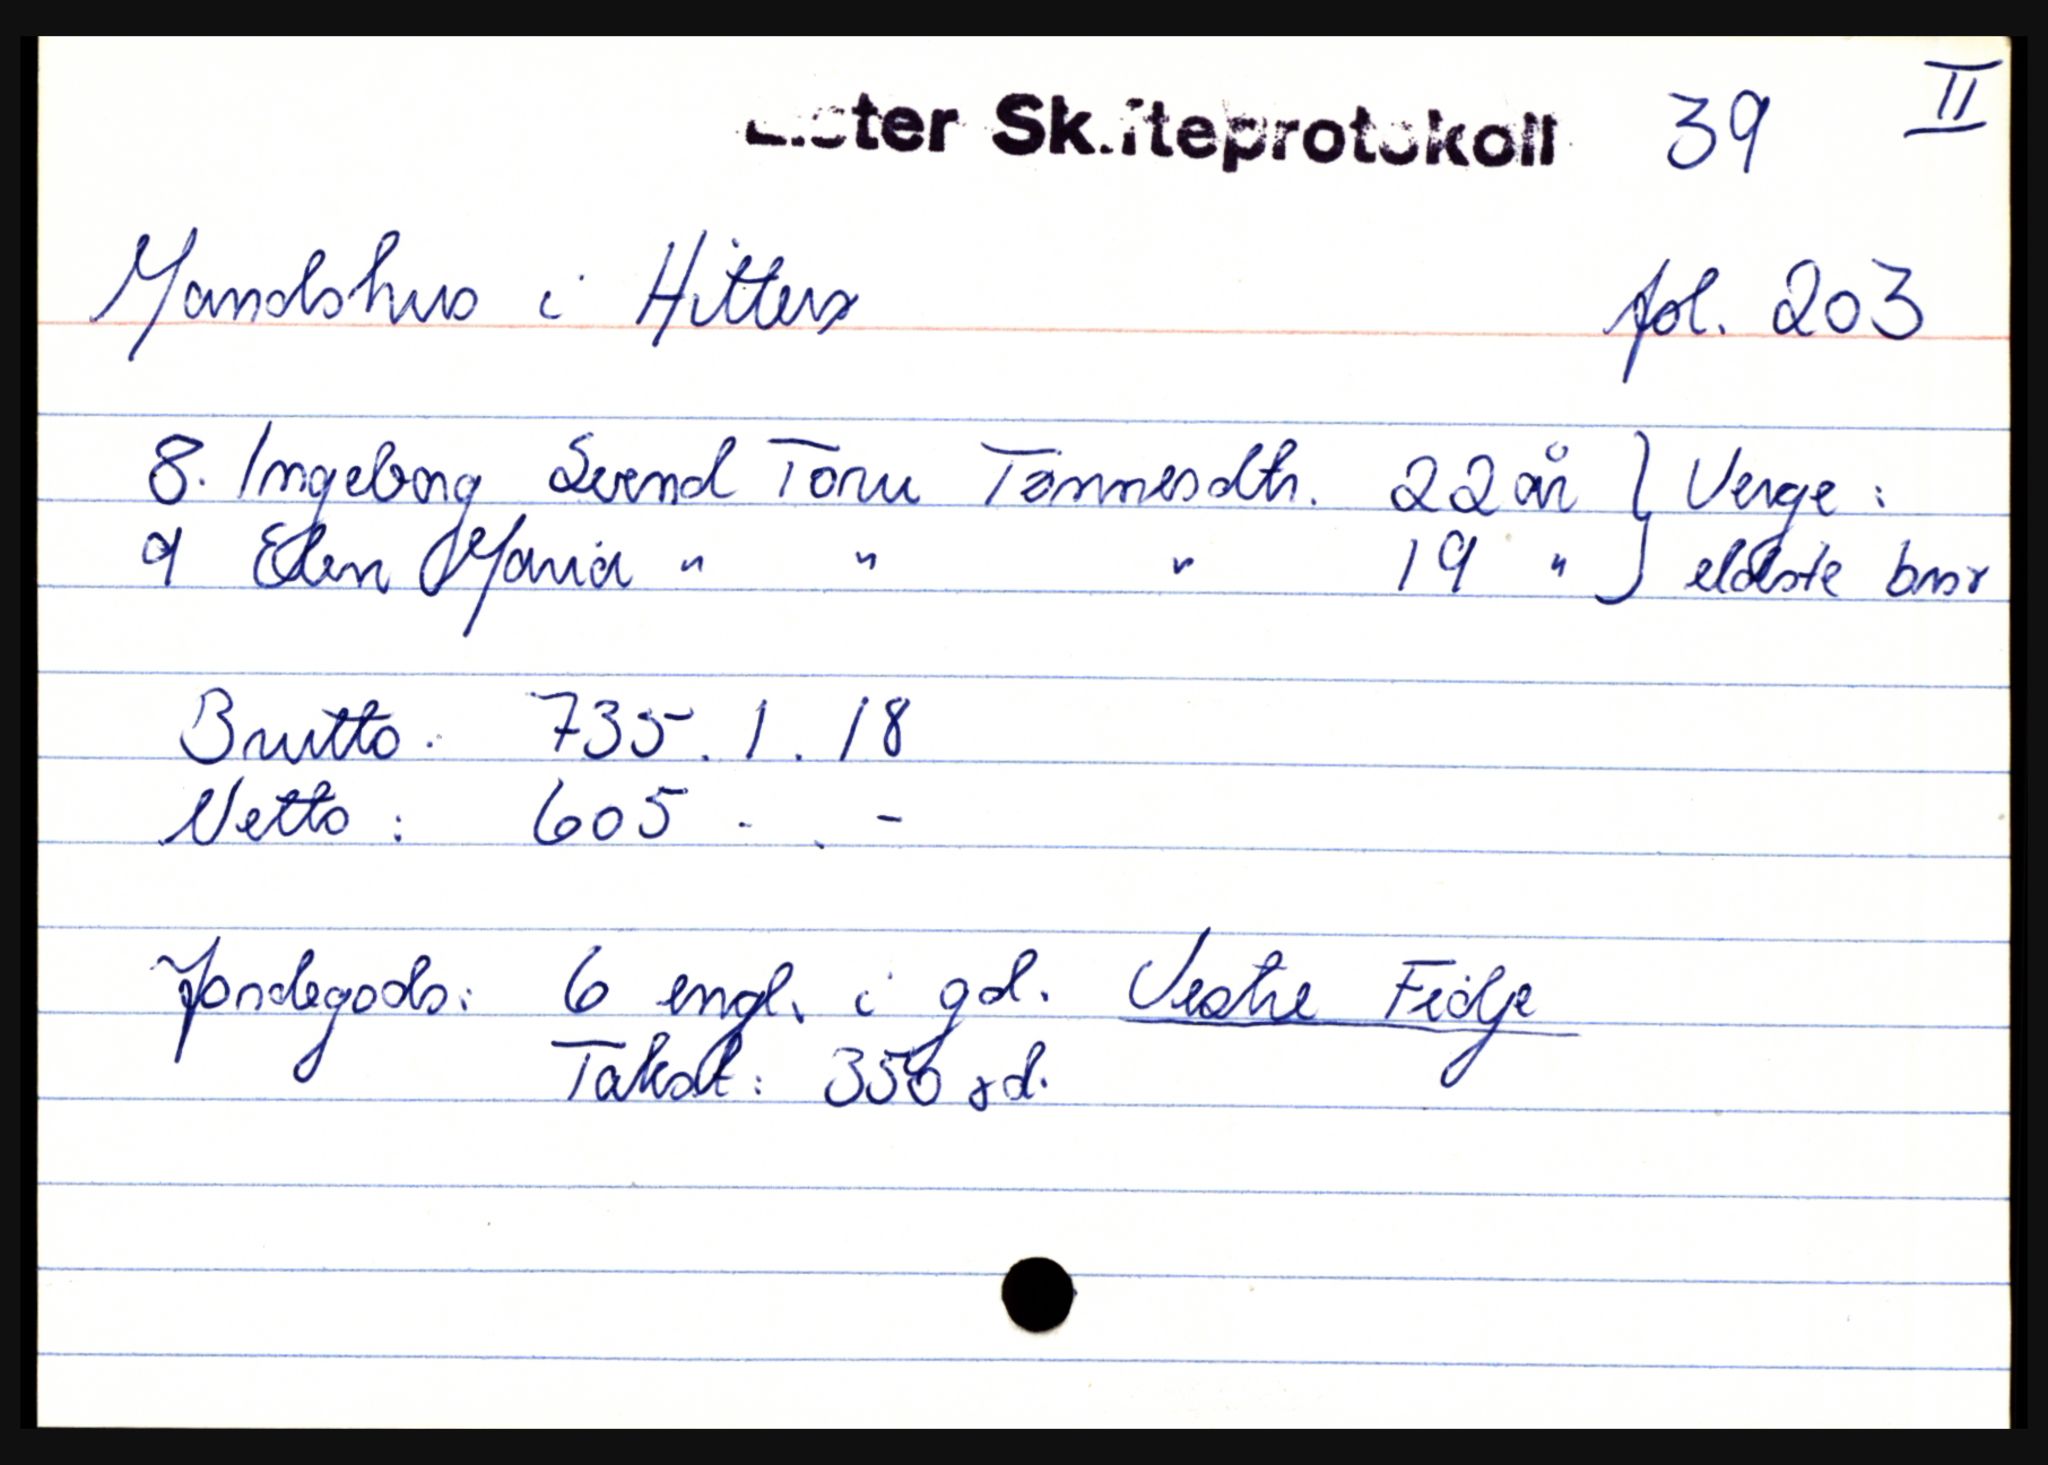 Lister Skifteprotokoll 39 II
Mandshus i Hitterø fol. 203
8. Ingeborg Svend Toru Tønnesdtr. 22 år } Verge:
9 Elen Maria " " " 19 " } eldste bror
Brutto: 735.1.18
Netto: 605 . . -
Jordegods: 6 engl. i gd. Vestre Fidje
Takst: 356 rd.